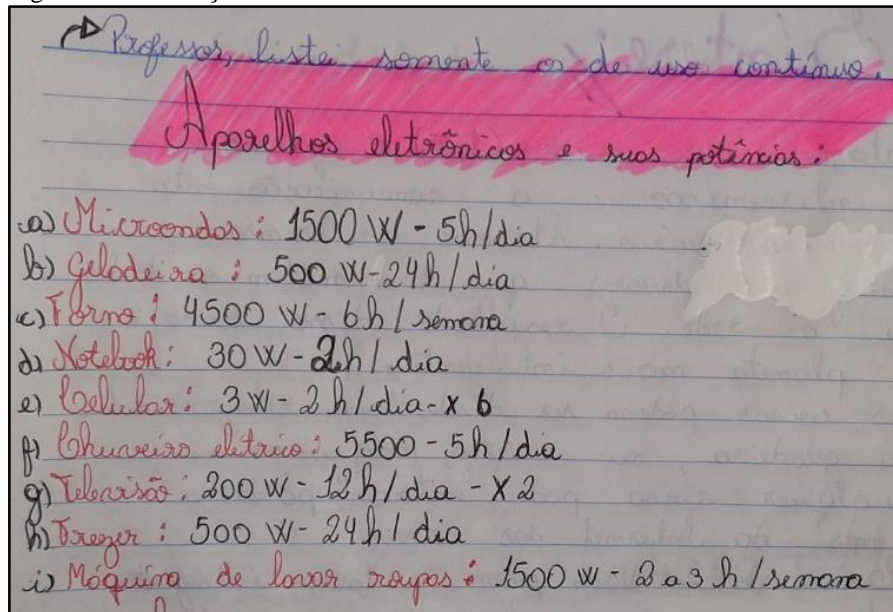 Professor, listei somente os de uso contínuo.
Aparelhos eletrônicos e suas potências:
a) Microondas: 1500 W - 5h/dia
b) Geladeira: 500 W - 24h/dia
c) Forno: 4500 W - 6h/semana
d) Notebook: 30 W - 2h/dia
e) Celular: 3 W - 2h/dia - x 6
f) Chuveiro elétrico: 5500 - 5h/dia
g) Televisão: 200 W - 12h/dia - x 2
h) Frezer: 500 W - 24h/dia
i) Máquina de lavar roupas: 1500 W - 2 a 3h/semana